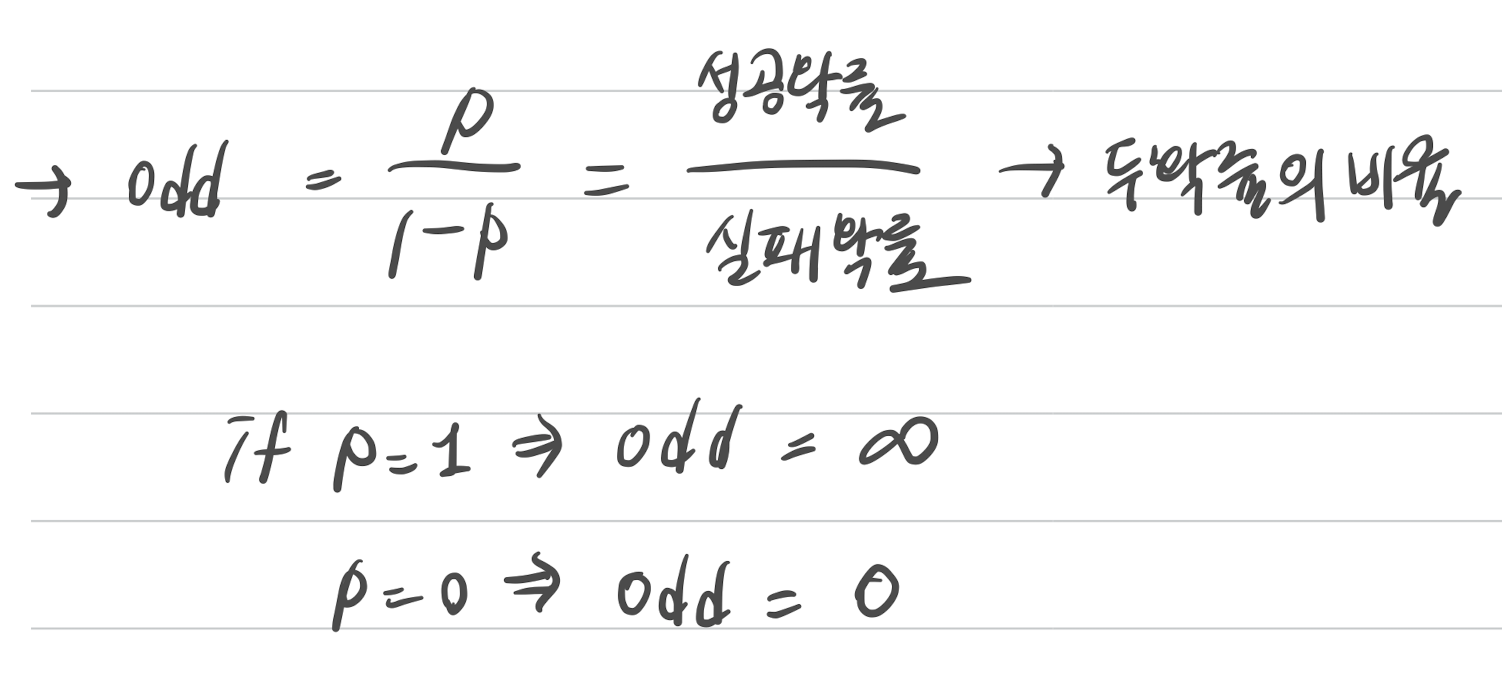 → odd = p/(1-p) = 성공확률/실패확률 → 두 확률의 비율
if p=1 ⇒ odd = ∞
p=0 ⇒ odd = 0